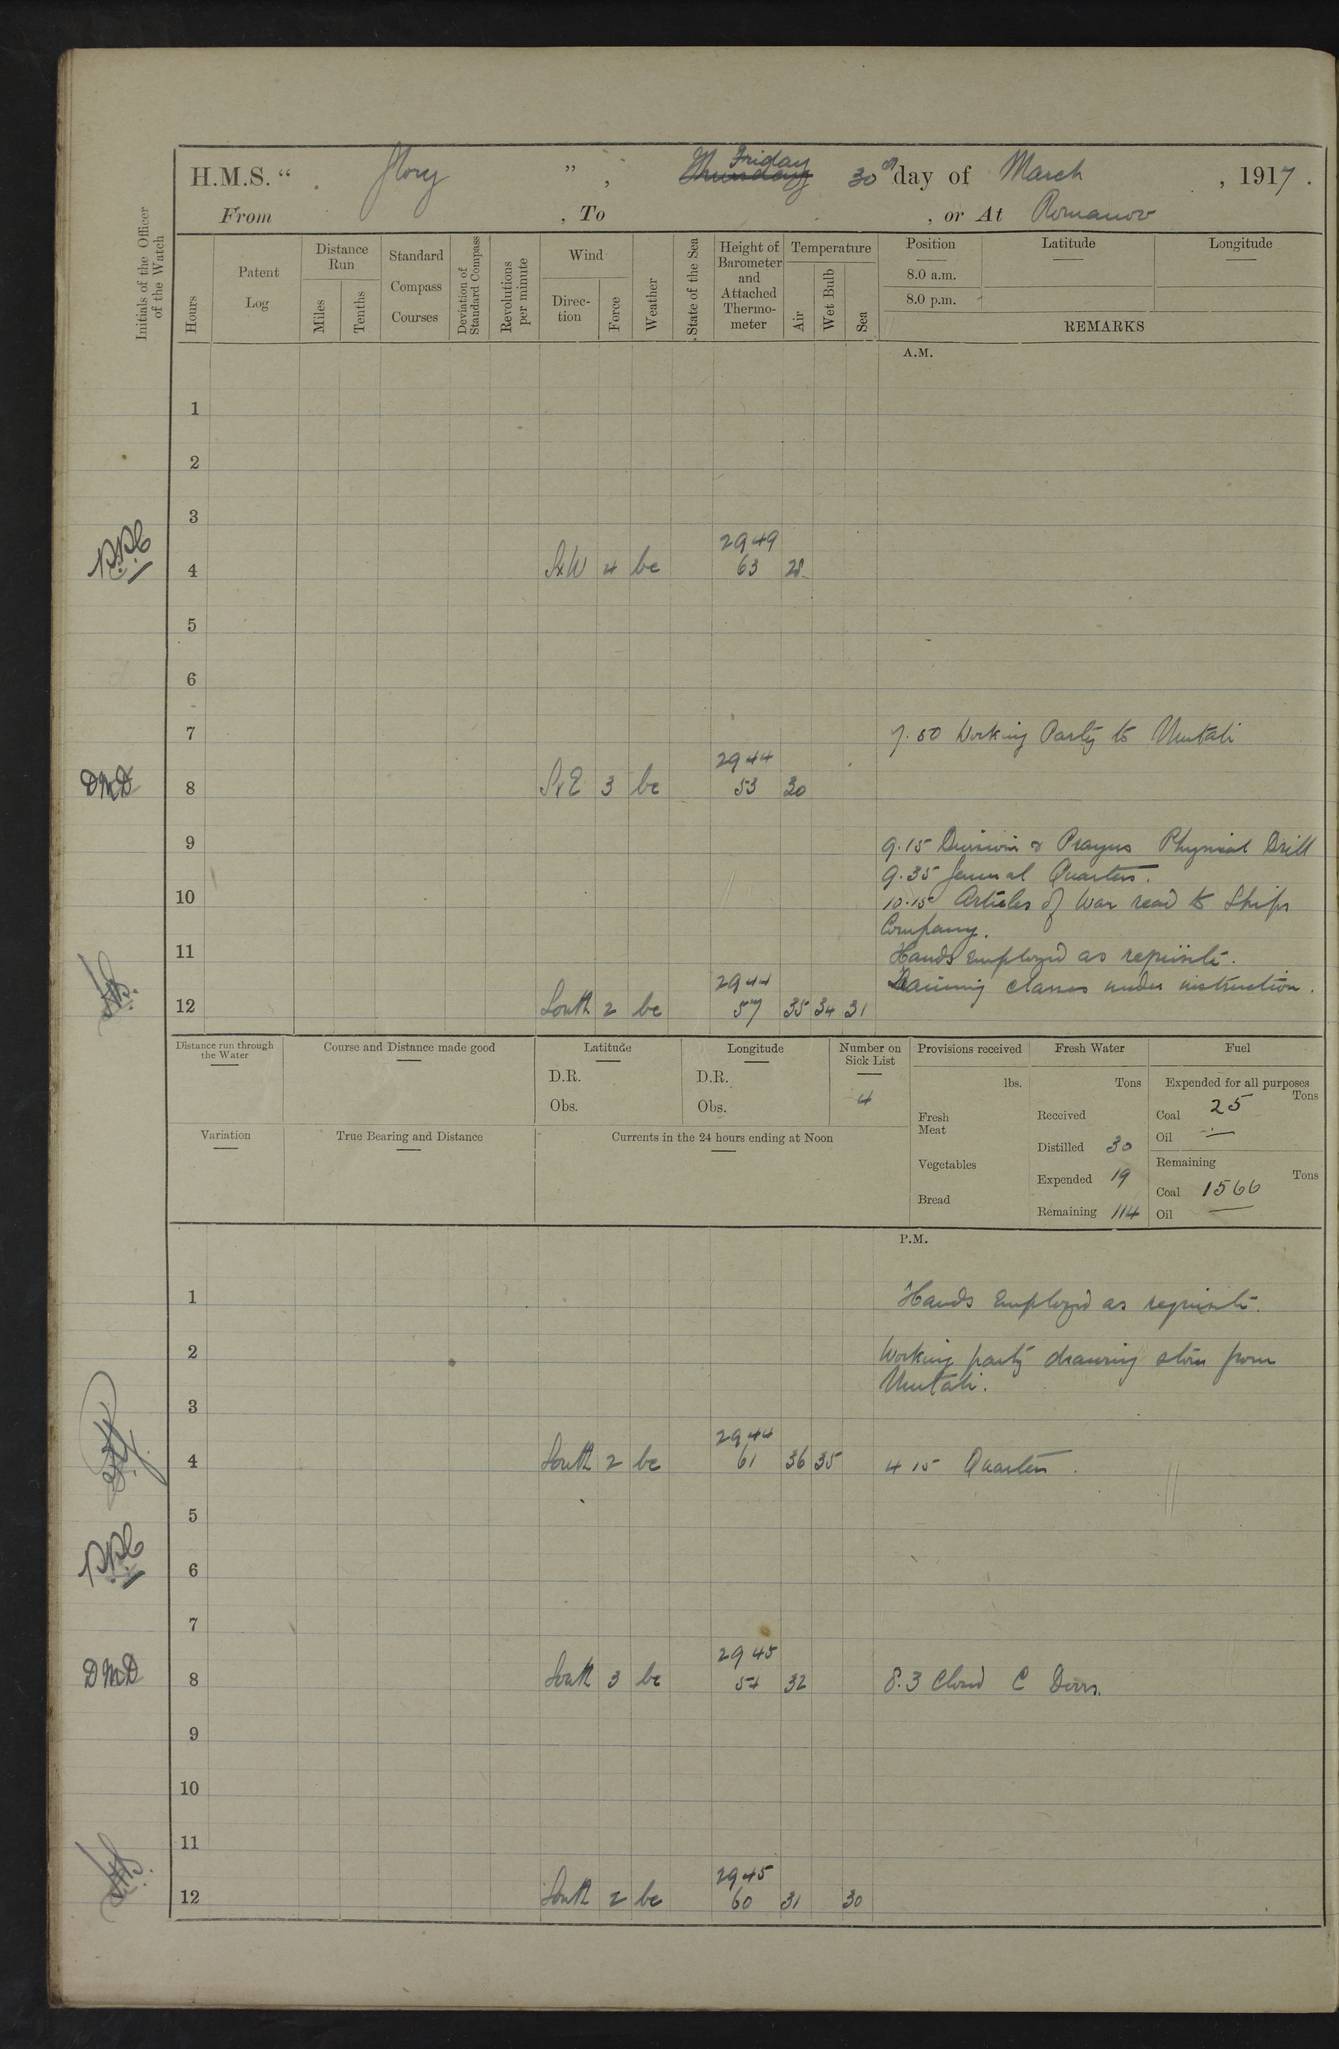 H.M.S. “ Glory ” , Thursday Friday 30th day of March , 1917 .
From , To , or At Romanov
Initials of the Officer of the Watch
Hours
Patent Log
Distance Run
Miles
Tenths
Standard Compass Courses
Deviation of Standard Compass
Revolutions per minute
Wind
Direc-tion
Force
Weather
State of the Sea
Height of Barometer and Attached Thermo-meter
Temperature
Air
Wet Bulb
Sea
Position Latitude Longitude
8.0 a.m.
8.0 p.m.
REMARKS
A.M.
1
2
3
2949
4 SxW 4 bc 63 28
5
6
7 7.50 Working Party to Umtali
2944
DMD 8 SxE 3 bc 53 30
9 9.15 Division & Prayers Physical Drill
9.35 General Quarters.
10 10.15 Articles of War read to Ships
Company.
11 Hands employed as requisite.
2944 Training classes under instruction.
12 South 2 bc 57 35 34 31
Distance run through the Water
Course and Distance made good
Latitude
D.R.
Obs.
Longitude
D.R.
Obs.
Number on Sick List
4
Provisions received
lbs.
Fresh Meat
Vegetables
Bread
Fresh Water
Tons
Received
Distilled 30
Expended 19
Remaining 114
Fuel
Expended for all purposes
Tons
Coal 25
Oil —
Remaining
Tons
Coal 1566
Oil —
Variation
True Bearing and Distance
Currents in the 24 hours ending at Noon
P.M.
1 Hands employed as requisite.
2 Working party drawing stores from
Umtali.
3
2944
4 South 2 bc 61 36 35 4 15 Quarters.
5
6
7
2945
DMD 8 South 3 bc 54 32 8.3 Closed C Doors.
9
10
11
2945
12 South 2 bc 60 31 30